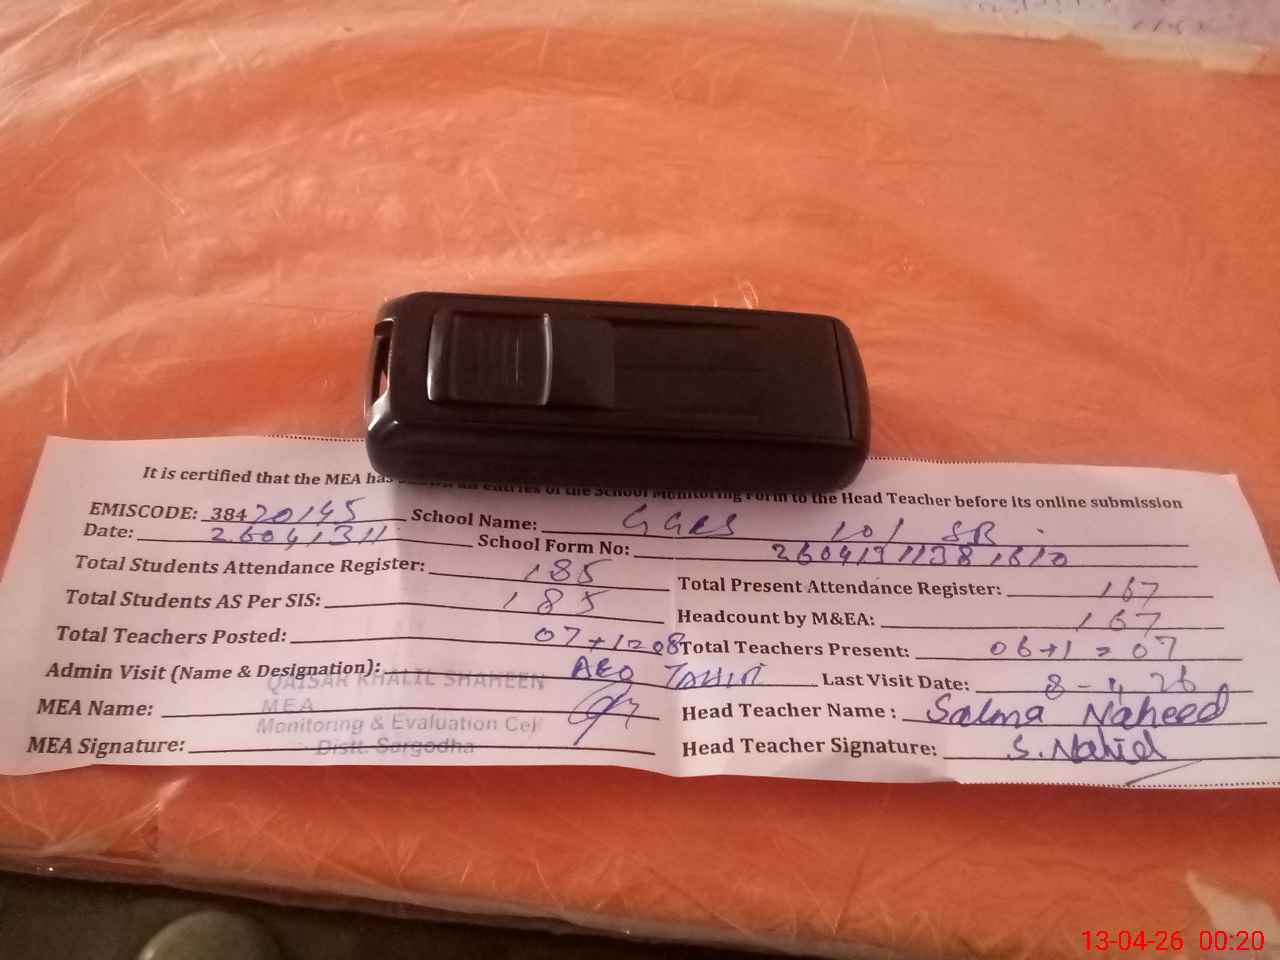 It is certified that the MEA has shown all entries of the School Monitoring Form to the Head Teacher before its online submission
EMISCODE: 38420145 School Name: GGES 101 SB
Date: 26041311 School Form No:
Total Students Attendance Register: 185 Total Present Attendance Register: 167
Total Students AS Per SIS: 185 Headcount by M&EA: 167
Total Teachers Posted: 07+1=08 Total Teachers Present: 06+1=07
Admin Visit (Name & Designation): AEO TAHIR Last Visit Date: 8-4 26
MEA Name: Head Teacher Name : Salma Naheed
MEA Signature: Head Teacher Signature: S.Nahid
QAISAR KHALIL SHAHEEN
MEA
Monitoring & Evaluation Cell
Distt. Sargodha
13-04-26 00:20